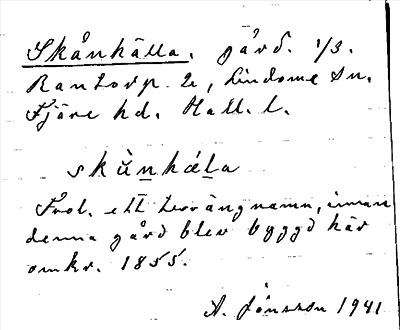 Skånhälla. gård. 1/3.
Rantorp 2, Lindome sn.
Fjäre hd. Hall. l.
skùn̲hǽl̲a
Trol. ett terrängnamn, innan
denna gård blev byggd här
omkr. 1855.
A. Jönsson 1941